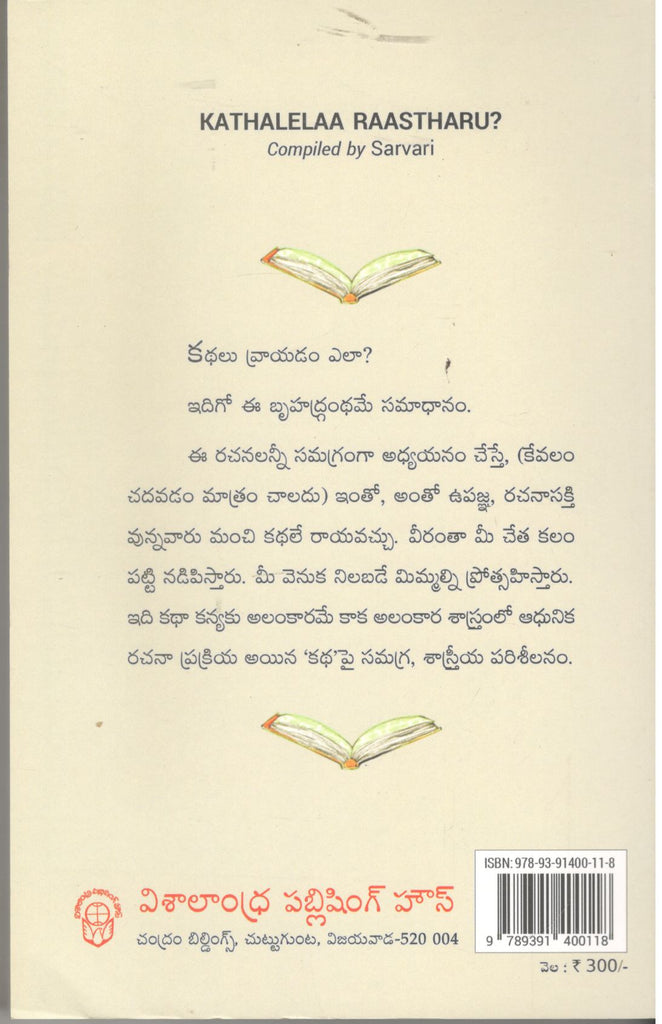 KATHALELAA RAASTHARU?
Compiled by Sarvari
కథలు వ్రాయడం ఎలా?
ఇదిగో ఈ బృహద్గ్రంథమే సమాధానం.
ఈ రచనలన్నీ సమగ్రంగా అధ్యయనం చేస్తే, (కేవలం
చదవడం మాత్రం చాలదు) ఇంతో, అంతో ఉపజ్ఞ, రచనాసక్తి
వున్నవారు మంచి కథలే రాయవచ్చు. వీరంతా మీ చేత కలం
పట్టి నడిపిస్తారు. మీ వెనుక నిలబడే మిమ్మల్ని ప్రోత్సహిస్తారు.
ఇది కథా కన్యకు అలంకారమే కాక అలంకార శాస్త్రంలో ఆధునిక
రచనా ప్రక్రియ అయిన ‘కథ’పై సమగ్ర, శాస్త్రీయ పరిశీలనం.
విశాలాంధ్ర పబ్లిషింగ్ హౌస్
చంద్రం బిల్డింగ్స్, చుట్టుగుంట, విజయవాడ-520 004
ISBN: 978-93-91400-11-8
9 789391 400118
వెల : ₹ 300/-